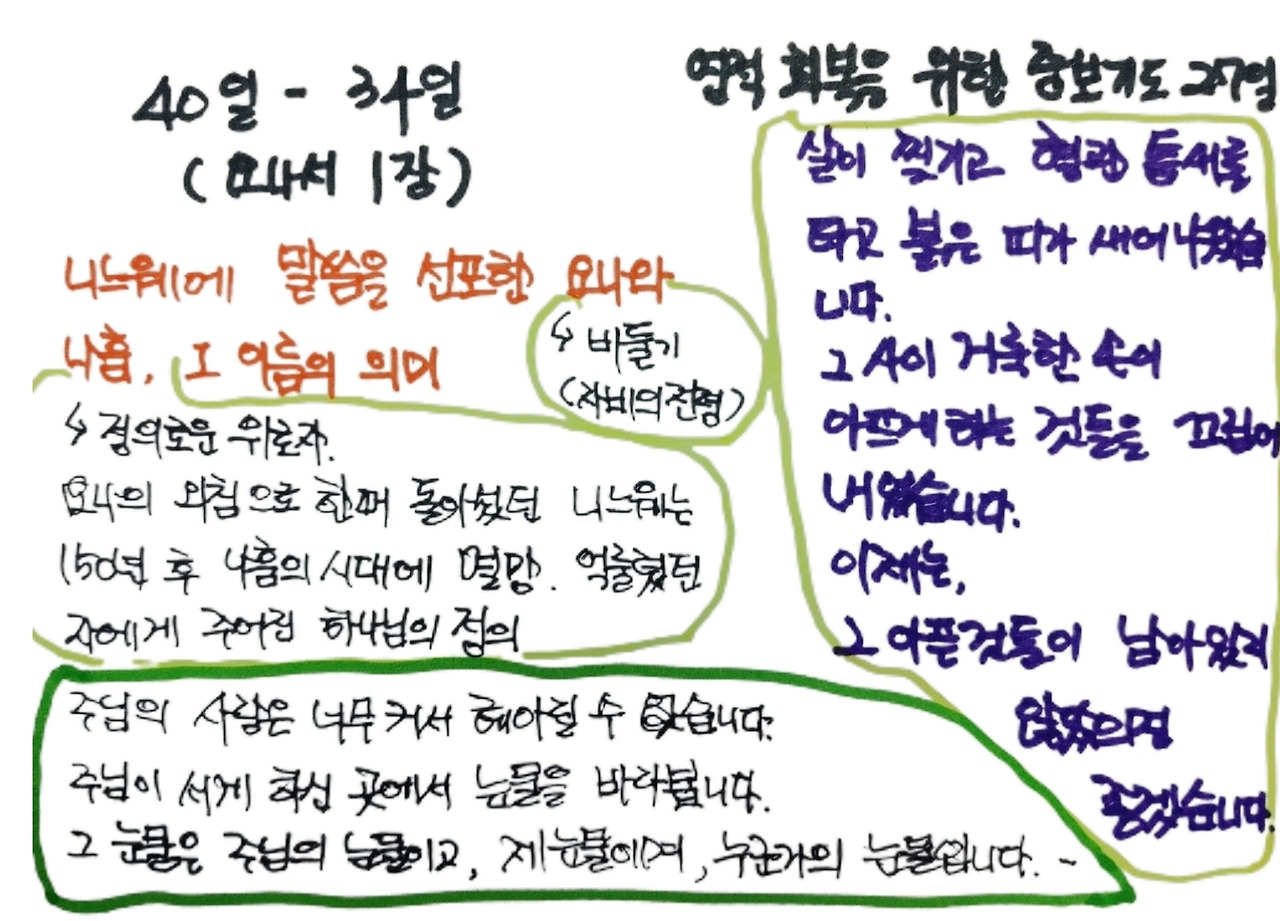 40일 - 34일
(요나서 1장)
니느웨에 말씀을 선포한 요나와
나훔, 그 이름의 의미
↳ 비둘기
(자비의 전형)
↳ 정의로운 위로자.
요나의 외침으로 한때 돌아섰던 니느웨는
150년 후 나훔의 시대에 멸망. 억눌렸던
자에게 주어진 하나님의 정의
주님의 사랑은 너무 커서 헤아릴 수 없습니다.
주님이 서게 하신 곳에서 눈물을 바라봅니다.
그 눈물은 주님의 눈물이고, 제 눈물이며, 누군가의 눈물입니다. ~
영적 회복을 위한 중보기도 27일
살이 찢기고 혈관 틈새를
타고 붉은 피가 새어나왔습
니다.
그 사이 거룩한 손이
아프게 하는 것들을 끄집어
내었습니다.
이제는,
그 아픈것들이 남아있지
않았으면
좋겠습니다.